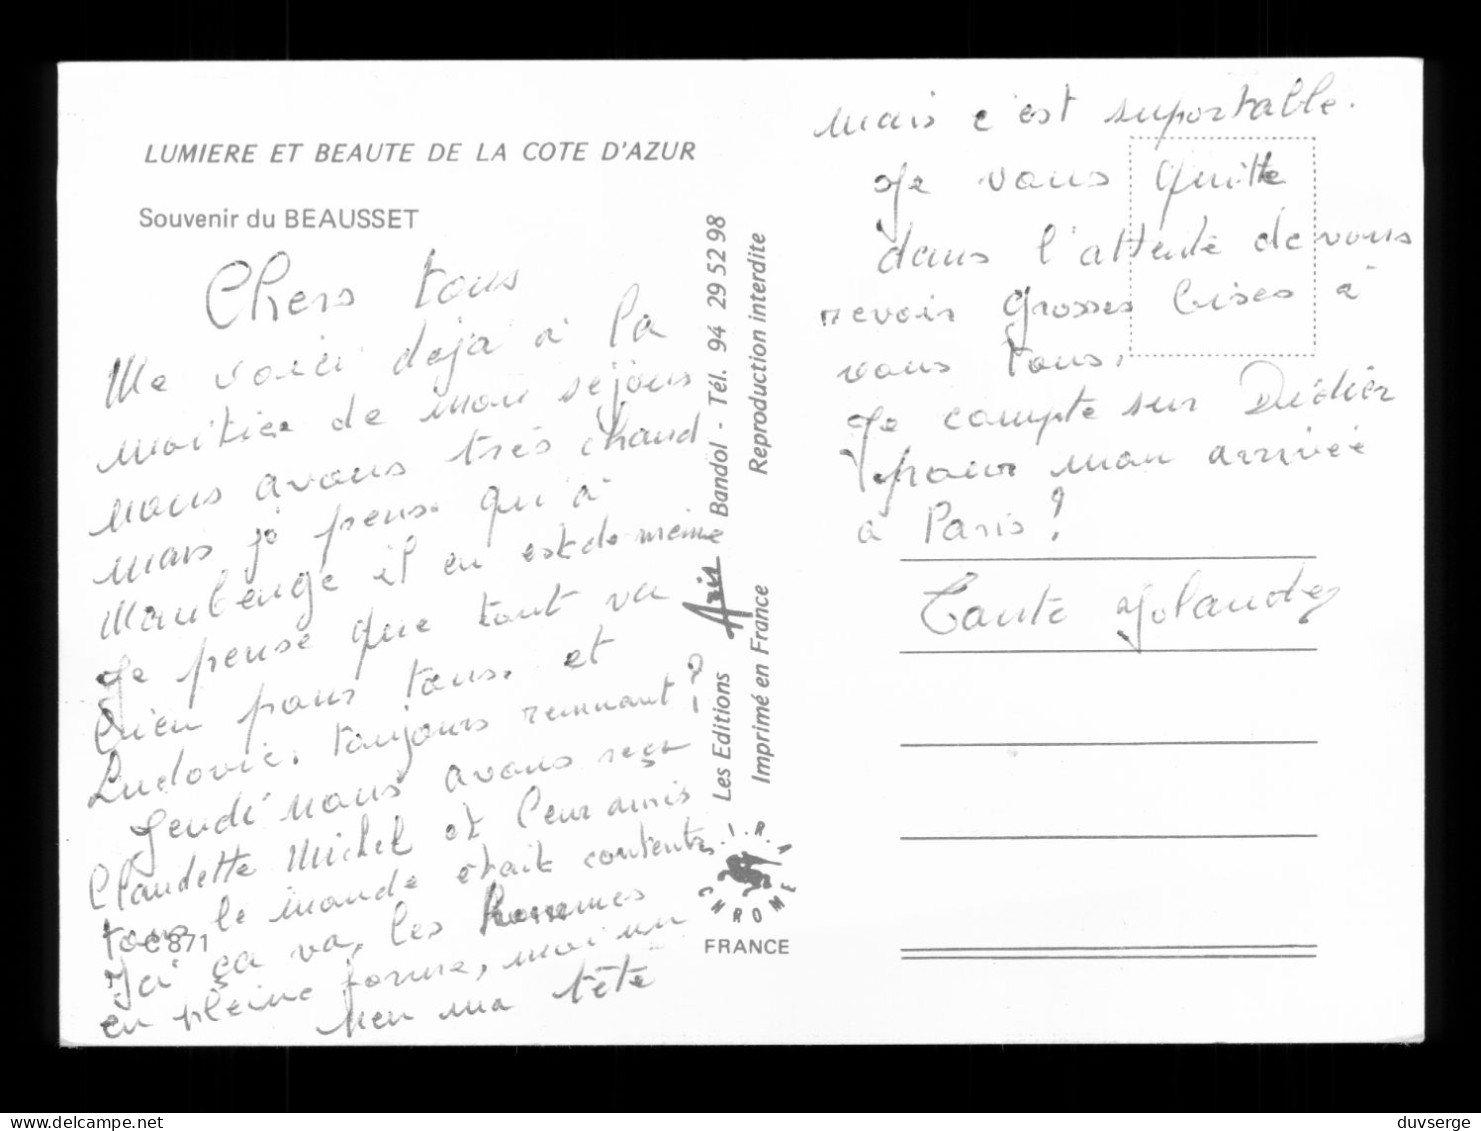 LUMIERE ET BEAUTE DE LA COTE D'AZUR
Souvenir du BEAUSSET
Chers tous
Me voici déjà à la
moitiée de mon séjous
nous avons très chaud
mais je pense qu'à
Maubeuge il en est de même
Je pense que tout va
bien pour tous. et
Ludovic. toujours remuant ?
Jeudi nous avons reçu
Claudette Michel et leur amis
tous le monde était contents
Ici ça va, les hommes
en pleine forme, moi un
peu ma tête
C 871
mais c'est suportable.
Je vous quitte
dans l'attente de vous
revoir grosses bises à
vous tous.
Je compte sur Didier
pour mon arrivée
à Paris ?
Tante Yolande
Les Editions Aris Bandol - Tél. 94 29 52 98
Imprimé en France Reproduction interdite
I.R.A
CHROME
FRANCE
delcampe.net
duvserge